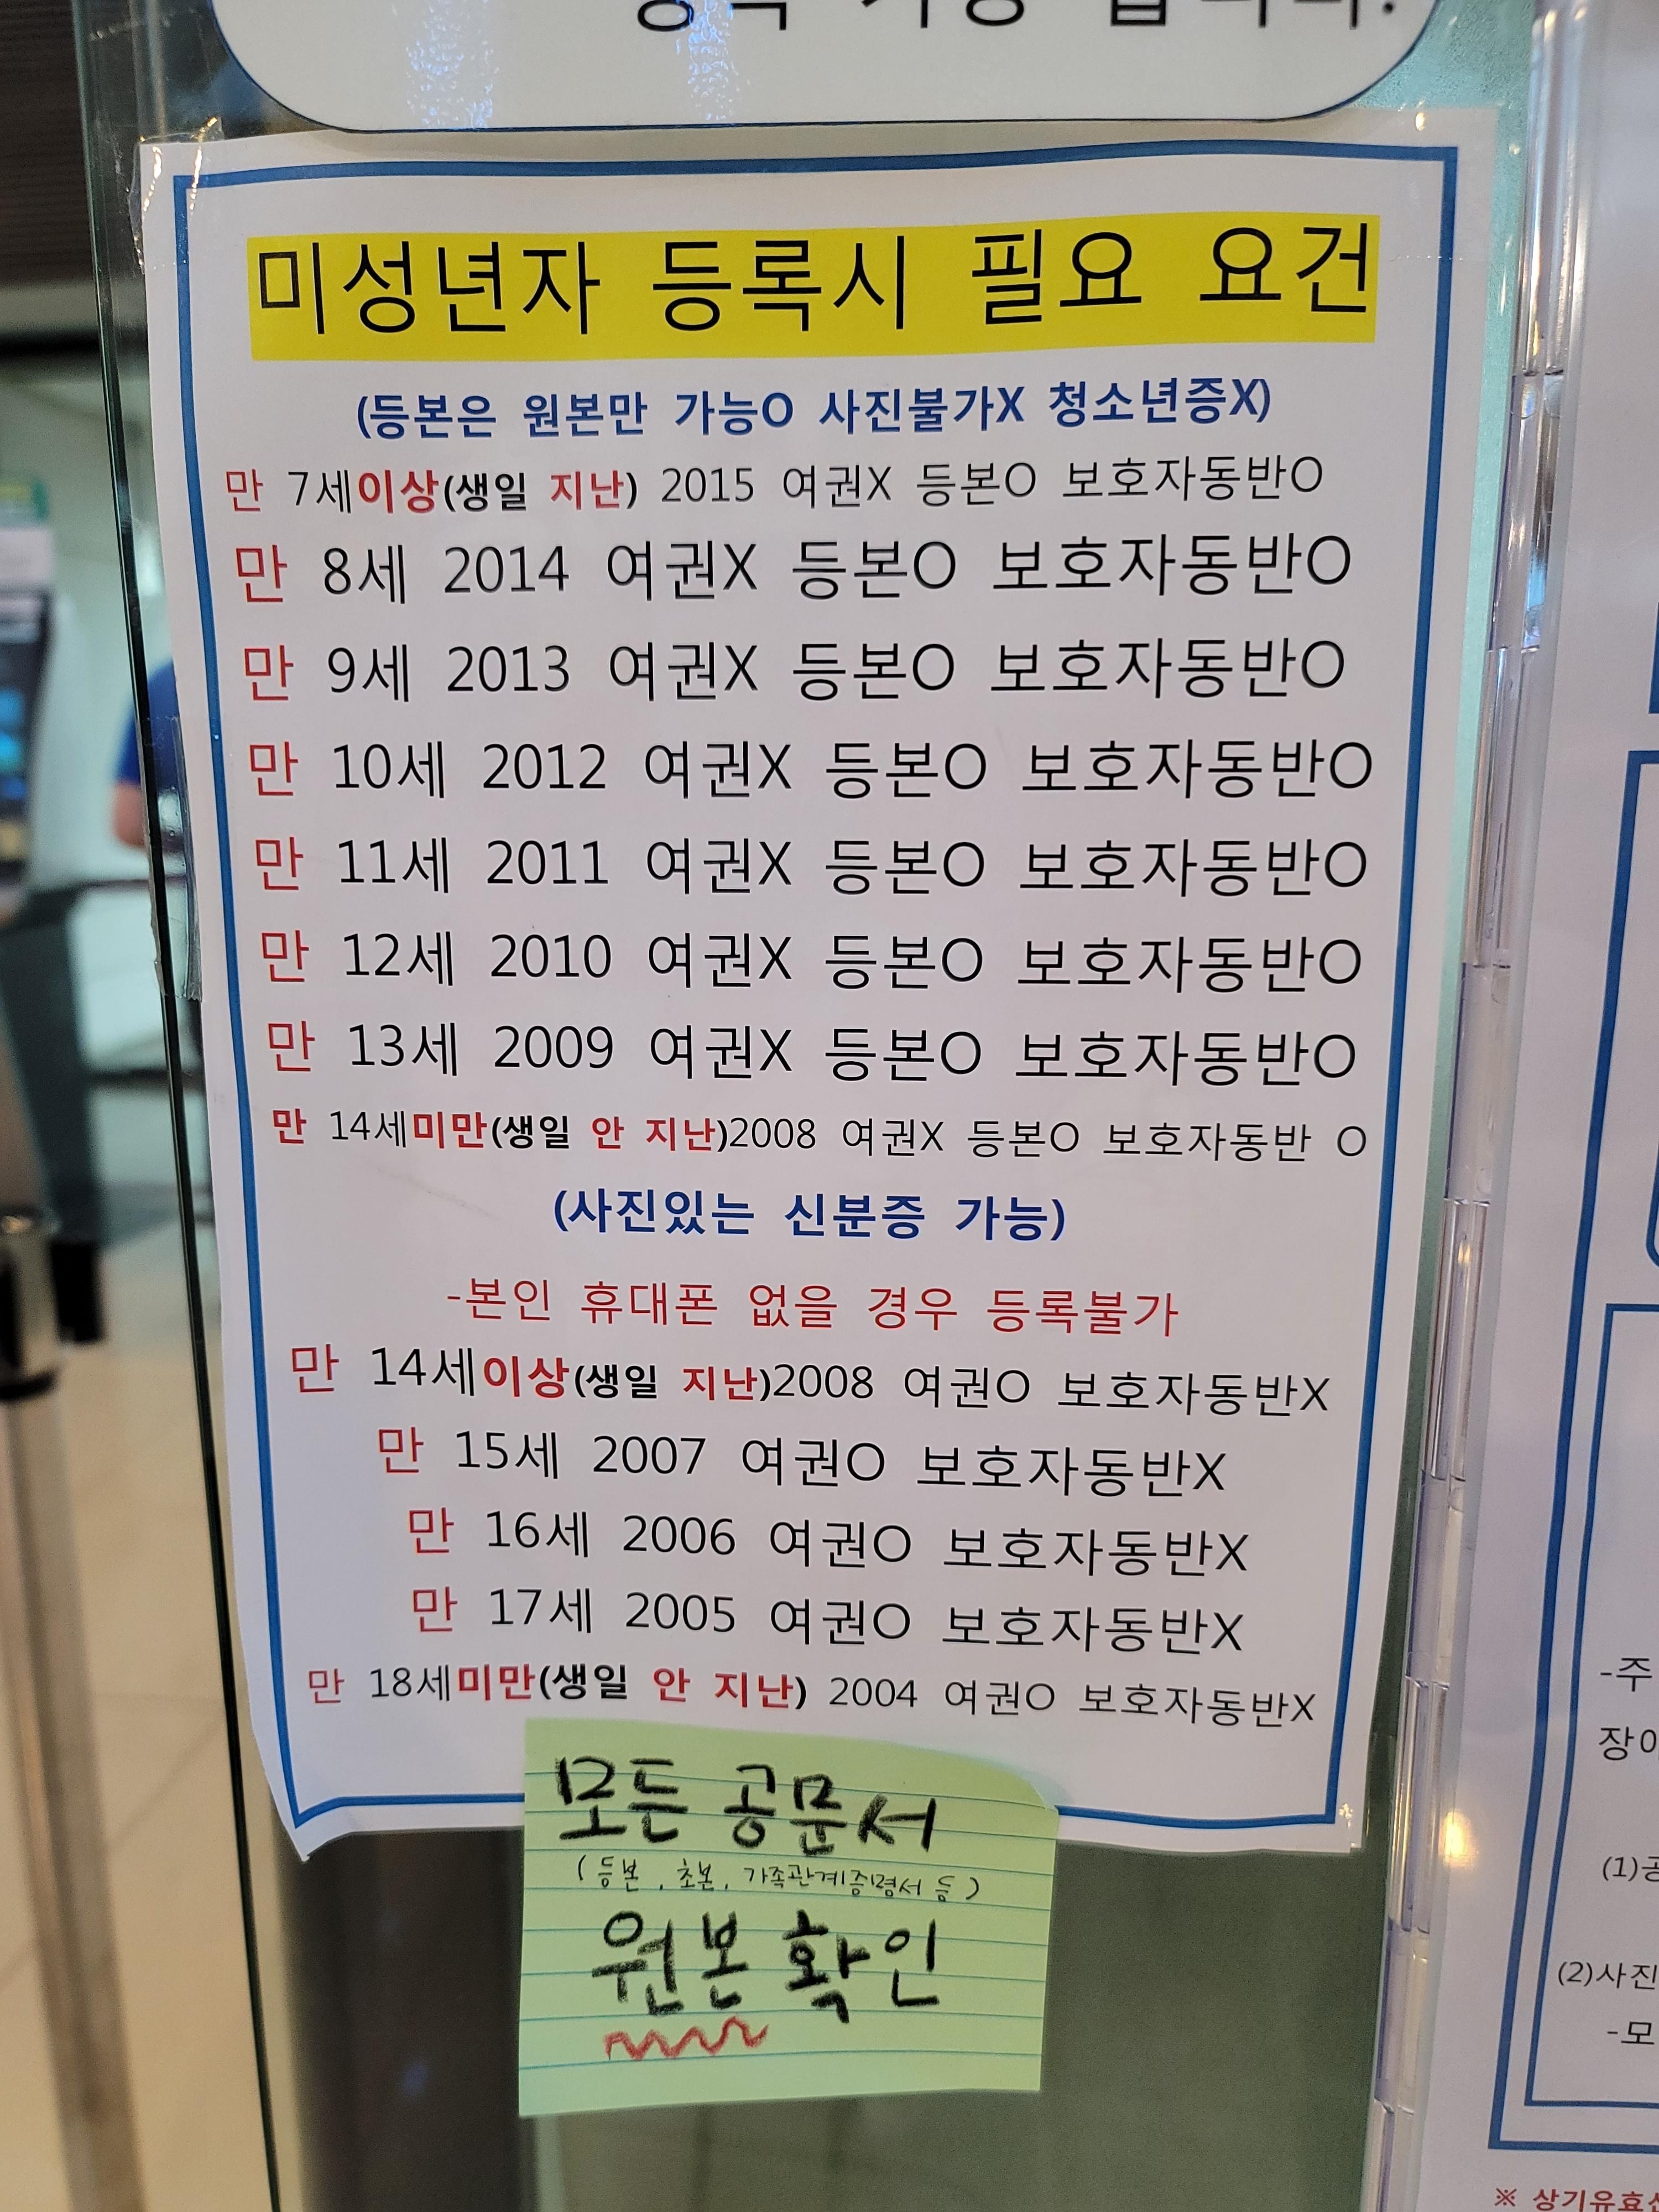 미성년자 등록시 필요 요건
(등본은 원본만 가능O 사진불가X 청소년증X)
만 7세이상(생일 지난) 2015 여권X 등본O 보호자동반O
만 8세 2014 여권X 등본O 보호자동반O
만 9세 2013 여권X 등본O 보호자동반O
만 10세 2012 여권X 등본O 보호자동반O
만 11세 2011 여권X 등본O 보호자동반O
만 12세 2010 여권X 등본O 보호자동반O
만 13세 2009 여권X 등본O 보호자동반O
만 14세미만(생일 안 지난)2008 여권X 등본O 보호자동반 O
(사진있는 신분증 가능)
-본인 휴대폰 없을 경우 등록불가
만 14세이상(생일 지난)2008 여권O 보호자동반X
만 15세 2007 여권O 보호자동반X
만 16세 2006 여권O 보호자동반X
만 17세 2005 여권O 보호자동반X
만 18세미만(생일 안 지난) 2004 여권O 보호자동반X
모든 공문서
(등본, 초본, 가족관계증명서 등)
원본 확인
-주
(2)사진
-모